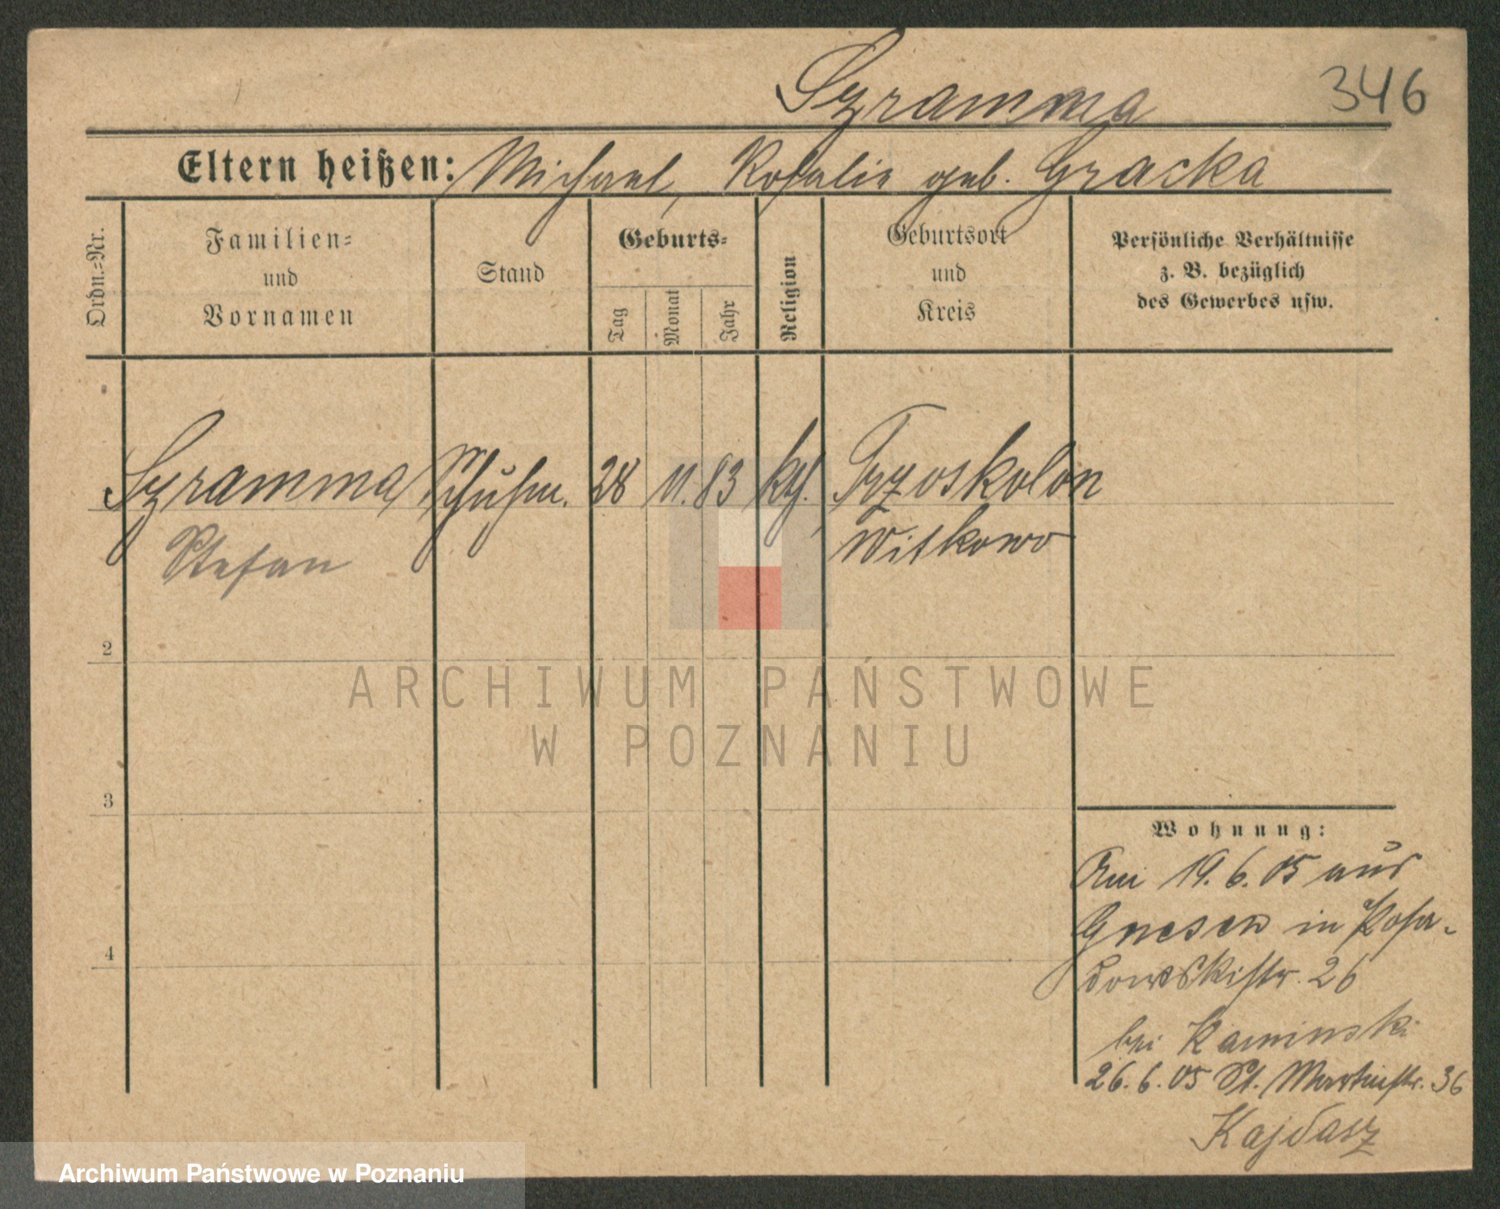 Szramma 346
Eltern heißen: Michael, Rosalie geb. Gracka
Ordn.-Nr.
Familien-
und
Vornamen
Stand
Geburts-
Tag
Monat
Jahr
Religion
Geburtsort
und
Kreis
Persönliche Verhältnisse
z. B. bezüglich
des Gewerbes usw.
Szramma Schuhm. 28 11. 83 kth. Trzoskolon
Stefan Witkowo
2
3
4
Wohnung:
Am 19. 6. 05 aus
Gnesen in Posa-
dowskistr. 26
bei Kaminski
26. 6. 05 St. Martinstr. 36
Kajdasz
ARCHIWUM PAŃSTWOWE
W POZNANIU
Archiwum Państwowe w Poznaniu